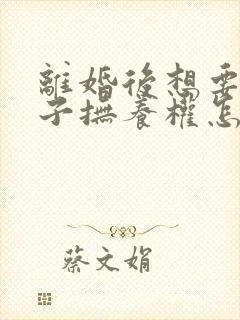 離婚後想要
子撫養權怎
蔡文娟